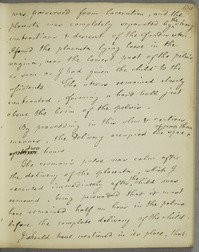 was preserved from laceration, and the
placenta was completely separated by the
contractions & descent of the
I found the placenta lying loose in the
vagina, near the lowest part of the pelvis
as soon as I had given the child to the
The uterus remained closely
contracted, forming a hard ball, just
above the brim of the pelvis.
By proceeding in this slow & cautious
manner, the delivery occupied the space
hours
The woman's pulse was calm after
the delivery of the placenta, which I
executed immediately after the child was
removed, being persuaded that it must
have remained half an hour in the pelvis
before the complete delivery of the child.
I should have mentioned in its place, that